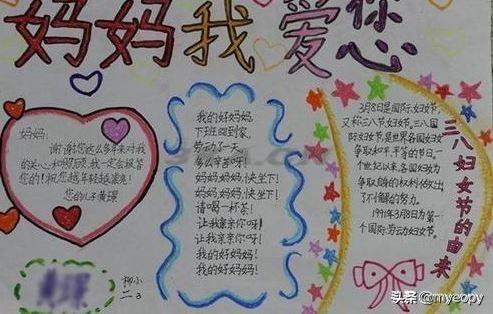 妈妈我爱您
妈妈:
谢谢您这么多年来对我
的关心和照顾,我一定会报答
您的!祝您越年轻越漂亮!
您的儿子黄璟
我的好妈妈
下班回到家,
劳动了一天
多么辛苦呀!
妈妈妈妈,快坐下!
妈妈妈妈,快坐下!
请喝一杯茶!
让我亲亲你呀!
让我亲亲你呀!
我的好妈妈!
我的好妈妈!
3月8日是国际妇女节,
又称三八节,妇女节,三八国
际妇女节,是世界各国妇女
争取和平、平等的节日。一
个世纪以来,各国妇女为
争取自身的权利作出了
不懈的努力。
1911年3月8日为第一
个国际劳动妇女节。
三八妇女节的由来
二3
头条 @myeopy